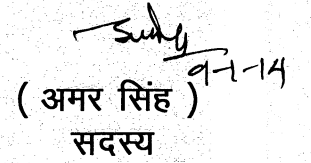 9-1-14
( अमर सिंह )
सदस्य